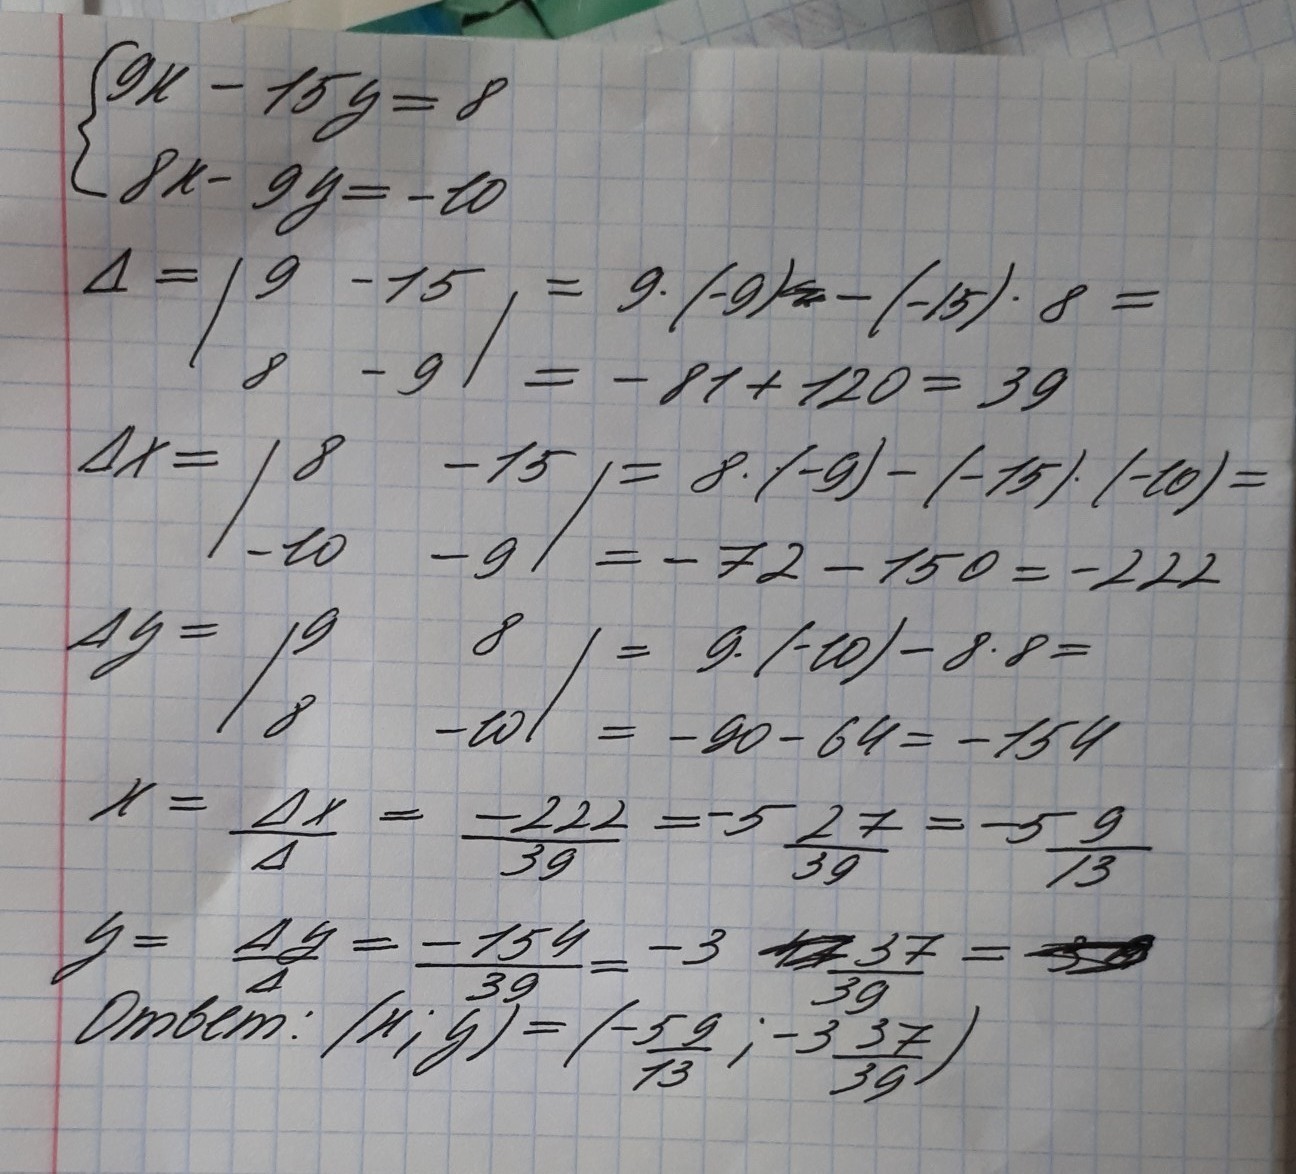 9x - 15y = 8
8x - 9y = -10
Δ = | 9 -15 | = 9·(-9) - (-15)·8 =
| 8 -9 | = -81 + 120 = 39
Δx = | 8 -15 | = 8·(-9) - (-15)·(-10) =
| -10 -9 | = -72 - 150 = -222
Δy = | 9 8 | = 9·(-10) - 8·8 =
| 8 -10 | = -90 - 64 = -154
x = Δx/Δ = -222/39 = -5 27/39 = -5 9/13
y = Δy/Δ = -154/39 = -3 37/39 =
Ответ: (x; y) = (-5 9/13; -3 37/39)